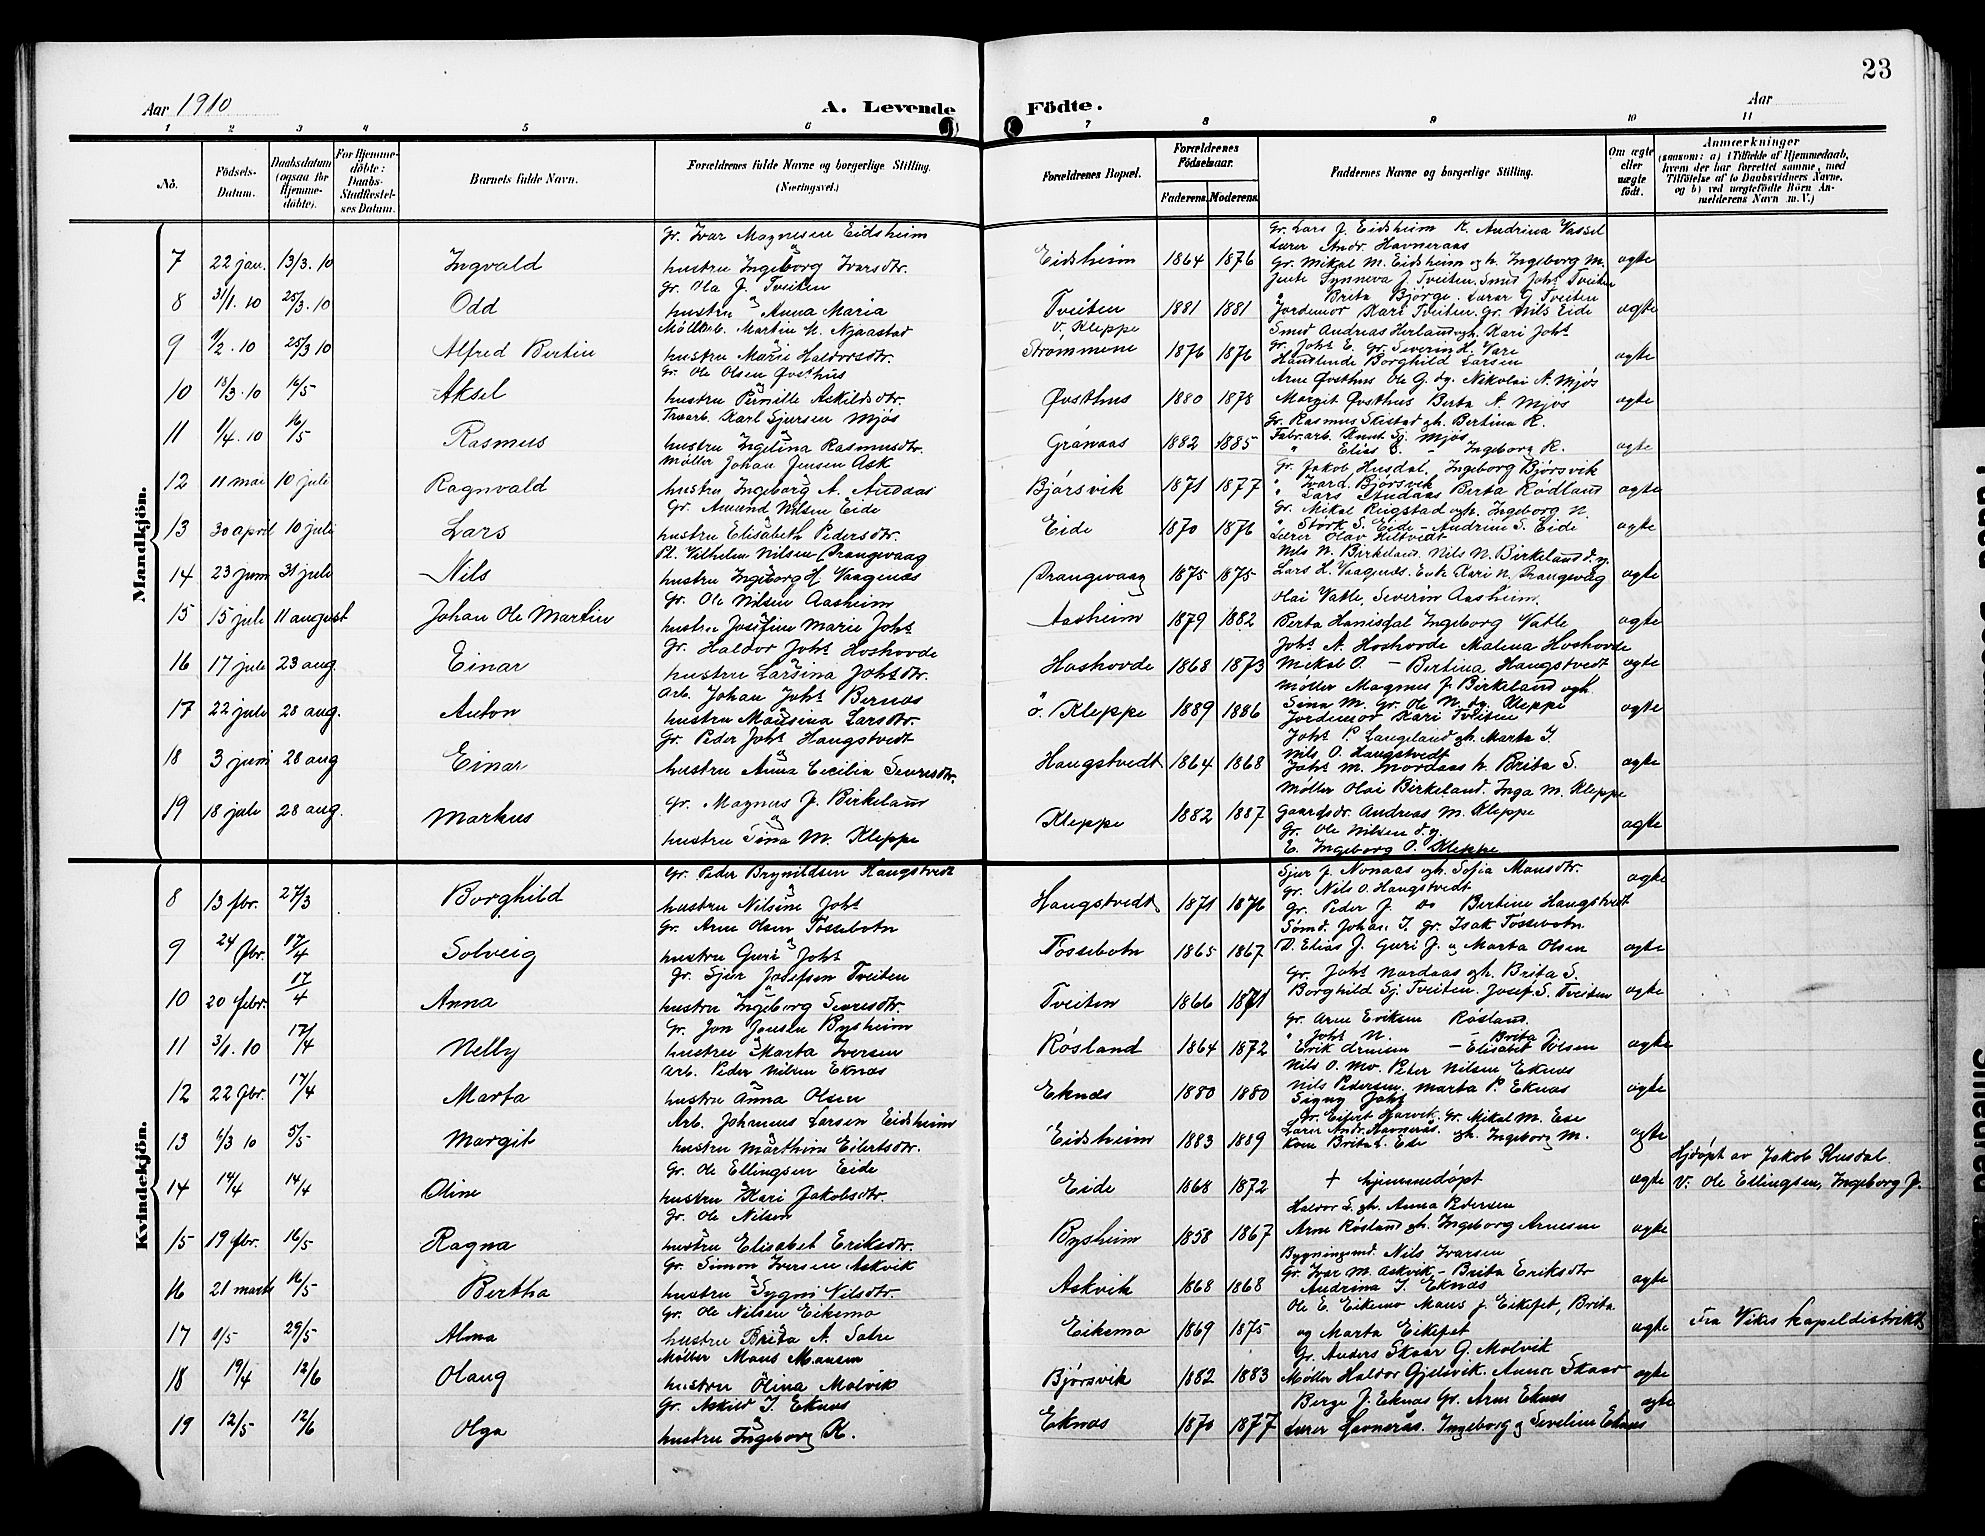 23
Aar 1910
A. Levende Födte.
Aar
1 2 3 4 5 6 7 8 9 10 11
No. Födsels-Datum. Daabsdatum (ogsaa for Hjemme-döbte). For Hjemme-döbte: Daabs-Stadfæstel-ses Datum. Barnets fulde Navn. Forældrenes fulde Navne og borgerlige Stilling. (Næringsvei.) Forældrenes Bopæl. Forældrenes Födselsaar. Faderens. Moderens. Faddernes Navne og borgerlige Stilling. Om ægte eller uægte födt. Anmærkninger (saasom: a) i Tilfælde af Hjemmedaab, hvem der har forrettet samme, med Tilföielse af to Daabsvidners Navne, og b) ved uægtefödte Börn An-melderens Navn m. V.)
Mandkjön.
Gr. Ivar Magnesen Eidsheim Gr. Lars J. Eidsheim K. Andrina Vassel
7 22 jan. 13/3. 10 Ingvald hustru Ingeborg Ivarsdtr. Eidsheim 1864 1876 Lærer Andr. Havneraas Gr. Mikal M. Eidsheim og h. Ingeborg M. ægte
Gr. Ola J. Tveiten Jente Synneva J. Tveiten. Smed Johs Tveiten
8 31/1. 10 25/3. 10 Odd hustru Anna Maria Tveiten 1881 1881 Brita Bjørge. Lærer G. Tveiten Jordemor Kari Tveiten. Gr. Nils Eide ægte
Møllarb. Martin N. Njaastad v. Kleppe Smed Andreas Herland og h. Kari Johs
9 9/2. 10 25/3 10 Alfred Bertin hustru Marie Haldorsdtr. Strømmene 1876 1876 Gr. Johs E. Gr. Severin H. Vare Handlende Borghild Larsen ægte
Gr. Ole Olsen Øvsthus Arne Øvsthus Ole G. dg. Nikolai A. Mjøs
10 13/3. 10 16/5 Aksel hustru Pernille Askildsdtr. Øvsthus 1880 1878 Margit Øvsthus Berta A. Mjøs ægte
Trearb. Karl Sjursen Mjøs Gr. Rasmus Skistad gh. Bertina R.
11 1/4. 10 16/5 Rasmus hustru Ingelina Rasmusdtr. Grånaas 1882 1885 Fabr.arb. Knut Sj. Mjøs Elias S. - Ingeborg R. ægte
Møller Johan Jensen Ask Gr. Jakob Husdal, Ingeborg Bjørsvik
12 11 mai 10 juli Ragnvald hustru Ingeborg A. Andaas Bjørsvik 1871 1877 " Ivar d. Bjørsvik " Lars Andaas Berta Rødland ægte
Gr. Amund Nilsen Eide Gr. Mikal Reigstad og h. Ingeborg N.
13 30 april 10 juli Lars hustru Elisabeth Pedersdtr. Eide 1870 1876 " Størk S. Eide - Andrine S. Eide Lærer Olav Hiltvedt ægte
Pl. Vilhelm Nilsen Drangevaag Nils N. Birkeland. Nils N. Birkeland d.y.
14 23 juni 31 juli Nils hustru Ingeborg H. Vaagenæs Drangevaag 1875 1875 Lars H. Vaagenæs. Enk. Kari N. Drangevåg ægte
Gr. Ole Nilsen Aasheim Olai Vatle, Severin Aasheim.
15 15 juli 11 august Johan Ole Martin hustru Josefine Marie Johs Aasheim 1879 1882 Berta Hanisdal Ingeborg Vatle ægte
Gr. Haldor Johs Hoshovde Johs A. Hoshovde Malena Hoshovde
16 17 juli 23 aug Einar hustru Larsina Johsdtr. Hoshovde 1868 1873 Mikal O. - Bertina Haugstvedt ægte
Arb. Johan Johs Bernæs Møller Magnus J. Birkeland og h.
17 22 juli 28 aug. Anton hustru Mansina Larsdtr. ö. Kleppe 1889 1886 Sina M. Gr. Ole N. dg. Kleppe Jordemor Kari Tveiten ægte
Gr. Peder Johs Haugstvedt Johs P. Langeland gh. Marta I.
18 3 juni 28 aug Einar hustru Anna Cecilia Seuresdtr. Haugstvedt 1864 1868 Nils O. Haugstvedt Johs M. Nordaas h. Brita S. ægte
Gr. Magnus J. Birkeland Møller Olai Birkeland. Inga M. Kleppe
19 18 juli 28 aug. Markus hustru Sina M. Kleppe Kleppe 1882 1887 Gaardsdr. Andreas M. Kleppe Gr. Ole Nilsen d.y. E. Ingeborg O. Kleppe ægte
Kvindekjön.
Gr. Peder Brynildsen Haugstvedt Sjur J. Nonaas gh. Sofia Mansdtr.
8 13 fbr. 27/3 Borghild hustru Nilsine Johs Haugstvedt 1871 1876 Gr. Nils O. Haugstvedt Gr. Peder J. Do Bertine Haugstvedt ægte
Gr. Arne Olsen Tossebotn Sømd. Johan I. Gr. Isak Tossebotn
9 24 fbr. 17/4 Solveig hustru Guri Johs Tossebotn 1865 1867 D. Elias J. Guri J. & Marta Olsen ægte
Gr. Sjur Josefsen Tveiten Gr. Johs Nordaas gh. Brita S.
10 20 febr. 17/4 Anna hustru Ingeborg Seuresdtr. Tveiten 1866 1871 Borghild Sj. Tveiten. Josef S. Tveiten ægte
Gr. Jon Jonsen Bysheim Gr. Arne Eriksen Røsland.
11 3/1. 10 17/4 Nelly hustru Marta Iversen Røsland 1864 1872 " Johs N. - Brita Erik Arnesen - Elisabet Tolsen ægte
Arb. Peder Nilsen Eknæs Nils O. Mo. Peter Nilsen Eknæs
12 22 fbr. 17/4 Marta hustru Anna Olsen Eknæs 1880 1880 Nils Pedersen. Marta P. Eknæs Signy Johs ægte
Arb. Johannes Larsen Eidsheim Gr. Eilert Hosvik. Gr. Mikal M. Ese
13 6/3 10 5/5 Margit hustru Marthine Eilertsdtr. Eidsheim 1883 1889 Lærer Andr. Havnerås. gh. Ingeborg M. Kone Brita L. Ese ægte
Gr. Ole Ellingsen Eide Hjdøpt av Jakob Husdal.
14 14/4 14/4 Oline hustru Kari Jakobsdtr. Eide 1868 1872 + hjemmedøpt ægte V. Ole Ellingsen, Ingeborg J.
Gr. Ole Nilsen Haldor S. gh. Anna Pedersen
15 19 fbr. 16/5 Ragna hustru Elisabet Eriksdtr. Bysheim 1858 1867 Arne Røsland gh. Ingeborg Arnesen ægte
Gr. Simon Iversen Askvik Bygningsmd. Nils Ivarsen
16 21 marts 16/5 Bertha hustru Sygni Nilsdtr. Askvik 1868 1868 Gr. Ivar M. Askvik - Brita Eriksdtr Andrina I. Eknæs ægte
Gr. Ole Nilsen Eikemo Ole E. Eikemo Mans J. Eikefet, Brita
17 1/5 29/5 Alma hustru Brita A. Solre Eikemo 1869 1875 og Marta Eikefet ægte Fra Vikes kapeldistrikt
Møller Mans Mansen Gr. Anders Skaar G. Molvik
18 19/4 12/6 Olaug hustru Olina Molvik Bjørsvik 1882 1883 Møller Haldor Gjelsvik. Anna Skaar ægte
Gr. Askild I. Eknæs Berge J. Eknæs Gr. Arne Eknæs
19 12/5 12/6 Olga hustru Ingeborg K. Eknæs 1870 1877 Lærer Havnerås. Ingeborg og Seveline Eknæs ægte